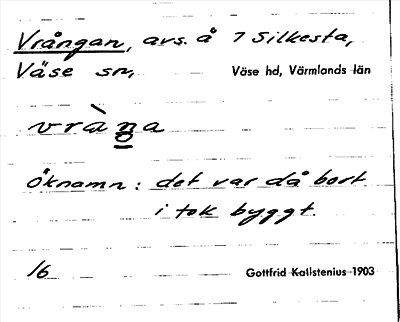 Vrångan, avs. å 7 Silkesta,
Väse sn, Väse hd, Värmlands län
vràŋa
Öknamn: det var då bort
i tok byggt.
16 Gottfrid Kallstenius 1903